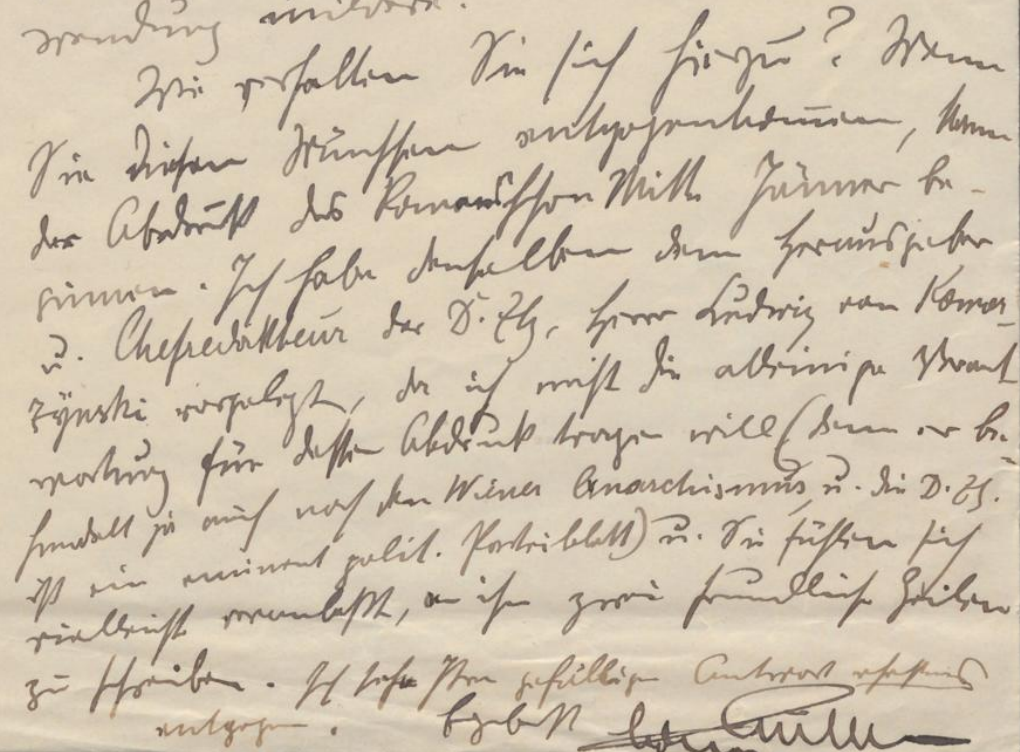 wendung mildere.
Wie verhalten Sie sich hierzu? Wenn
Sie diesen Wünschen entgegenkommen, kann
der Abdruck des Romans schon Mitte Jänner be-
ginnen. Ich habe denselben dem Herausgeber
u. Chefredakteur der D. Ztg, Herrn Ludwig von
vorgelegt, da ich nicht die alleinige Verant
wortung für dessen Abdruck tragen will (denn er be-
handelt ja auch noch den Wiener Anarchismus, u. die D. Ztg.
ist ein eminent polit. Parteiblatt) u. Sie fühlen sich
vielleicht veranlaßt, an ihn zwei freundliche Zeilen
zu schreiben. Ich sehe Ihrer gefälligen Antwort
entgegen. Ergebenst